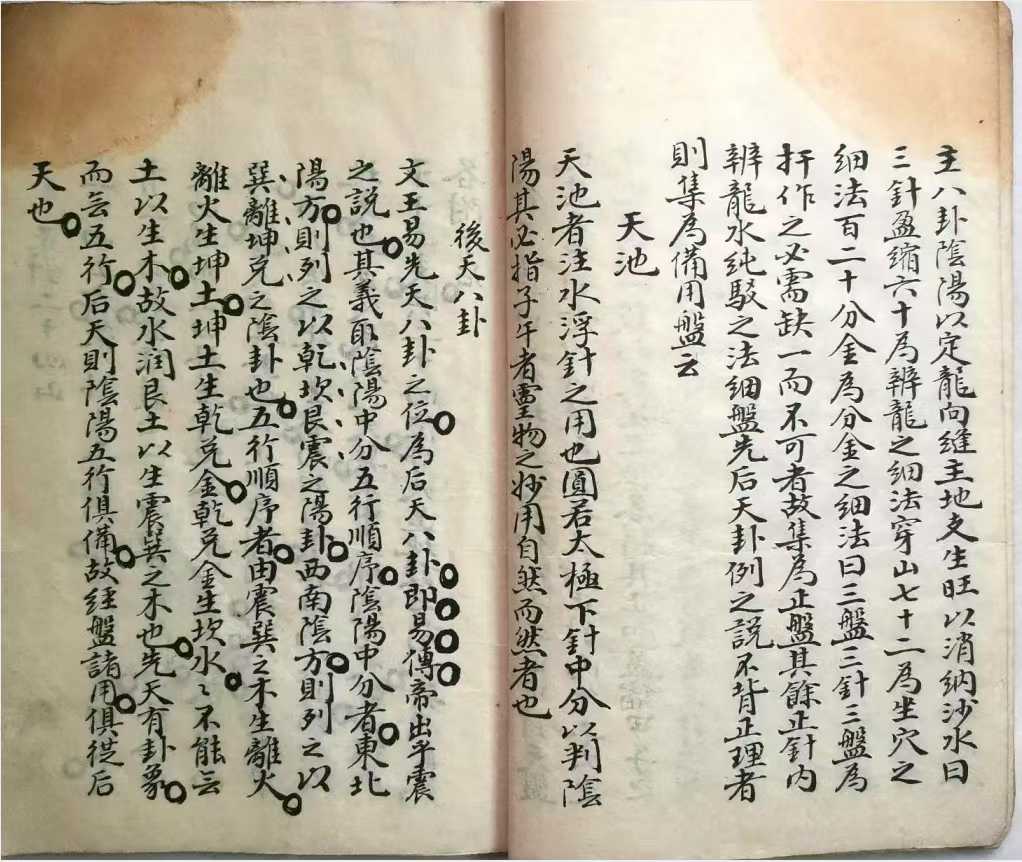 主八卦陰陽以定龍向縫主地支生旺以消納沙水曰
三針盈縮六十為辨龍之細法穿山七十二為坐穴之
細法百二十分金為分金之細法曰三盤三針三盤為
扦作之必需缺一而不可者故集為正盤其餘正針内
辨龍水純駁之法細盤先后天卦例之說不背正理者
則集為備用盤云
天池
天池者注水浮針之用也圓若太極下針中分以判陰
陽其必指子午者靈物之妙用自然而然者也
後天八卦
文王易先天八卦之位為后天八卦即易傳帝出乎震
之說也其義取陰陽中分五行順序陰陽中分者東北
陽方則列之以乾坎艮震之陽卦西南陰方則列之以
巽離坤兌之陰卦也五行順序者由震巽之木生離火
離火生坤土坤土生乾兌金乾兌金生坎水〻不能云
土以生木故水润艮土以生震巽之木也先天有卦象
而無五行后天則陰陽五行俱備故經盤諸用俱從后
天也